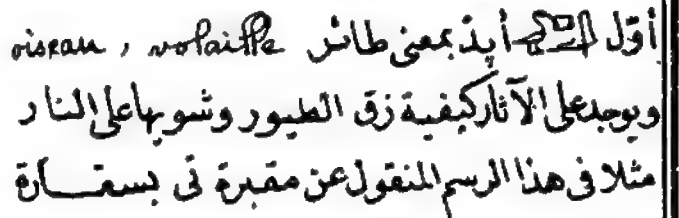 أوّل أپدْ بمعنى طائر oiseau, volaille
ويوجد على الآثار كيفية زق الطيور وشويها على النار
مثلا فى هذا الرسم المنقول عن مقبرة تى بسقارة